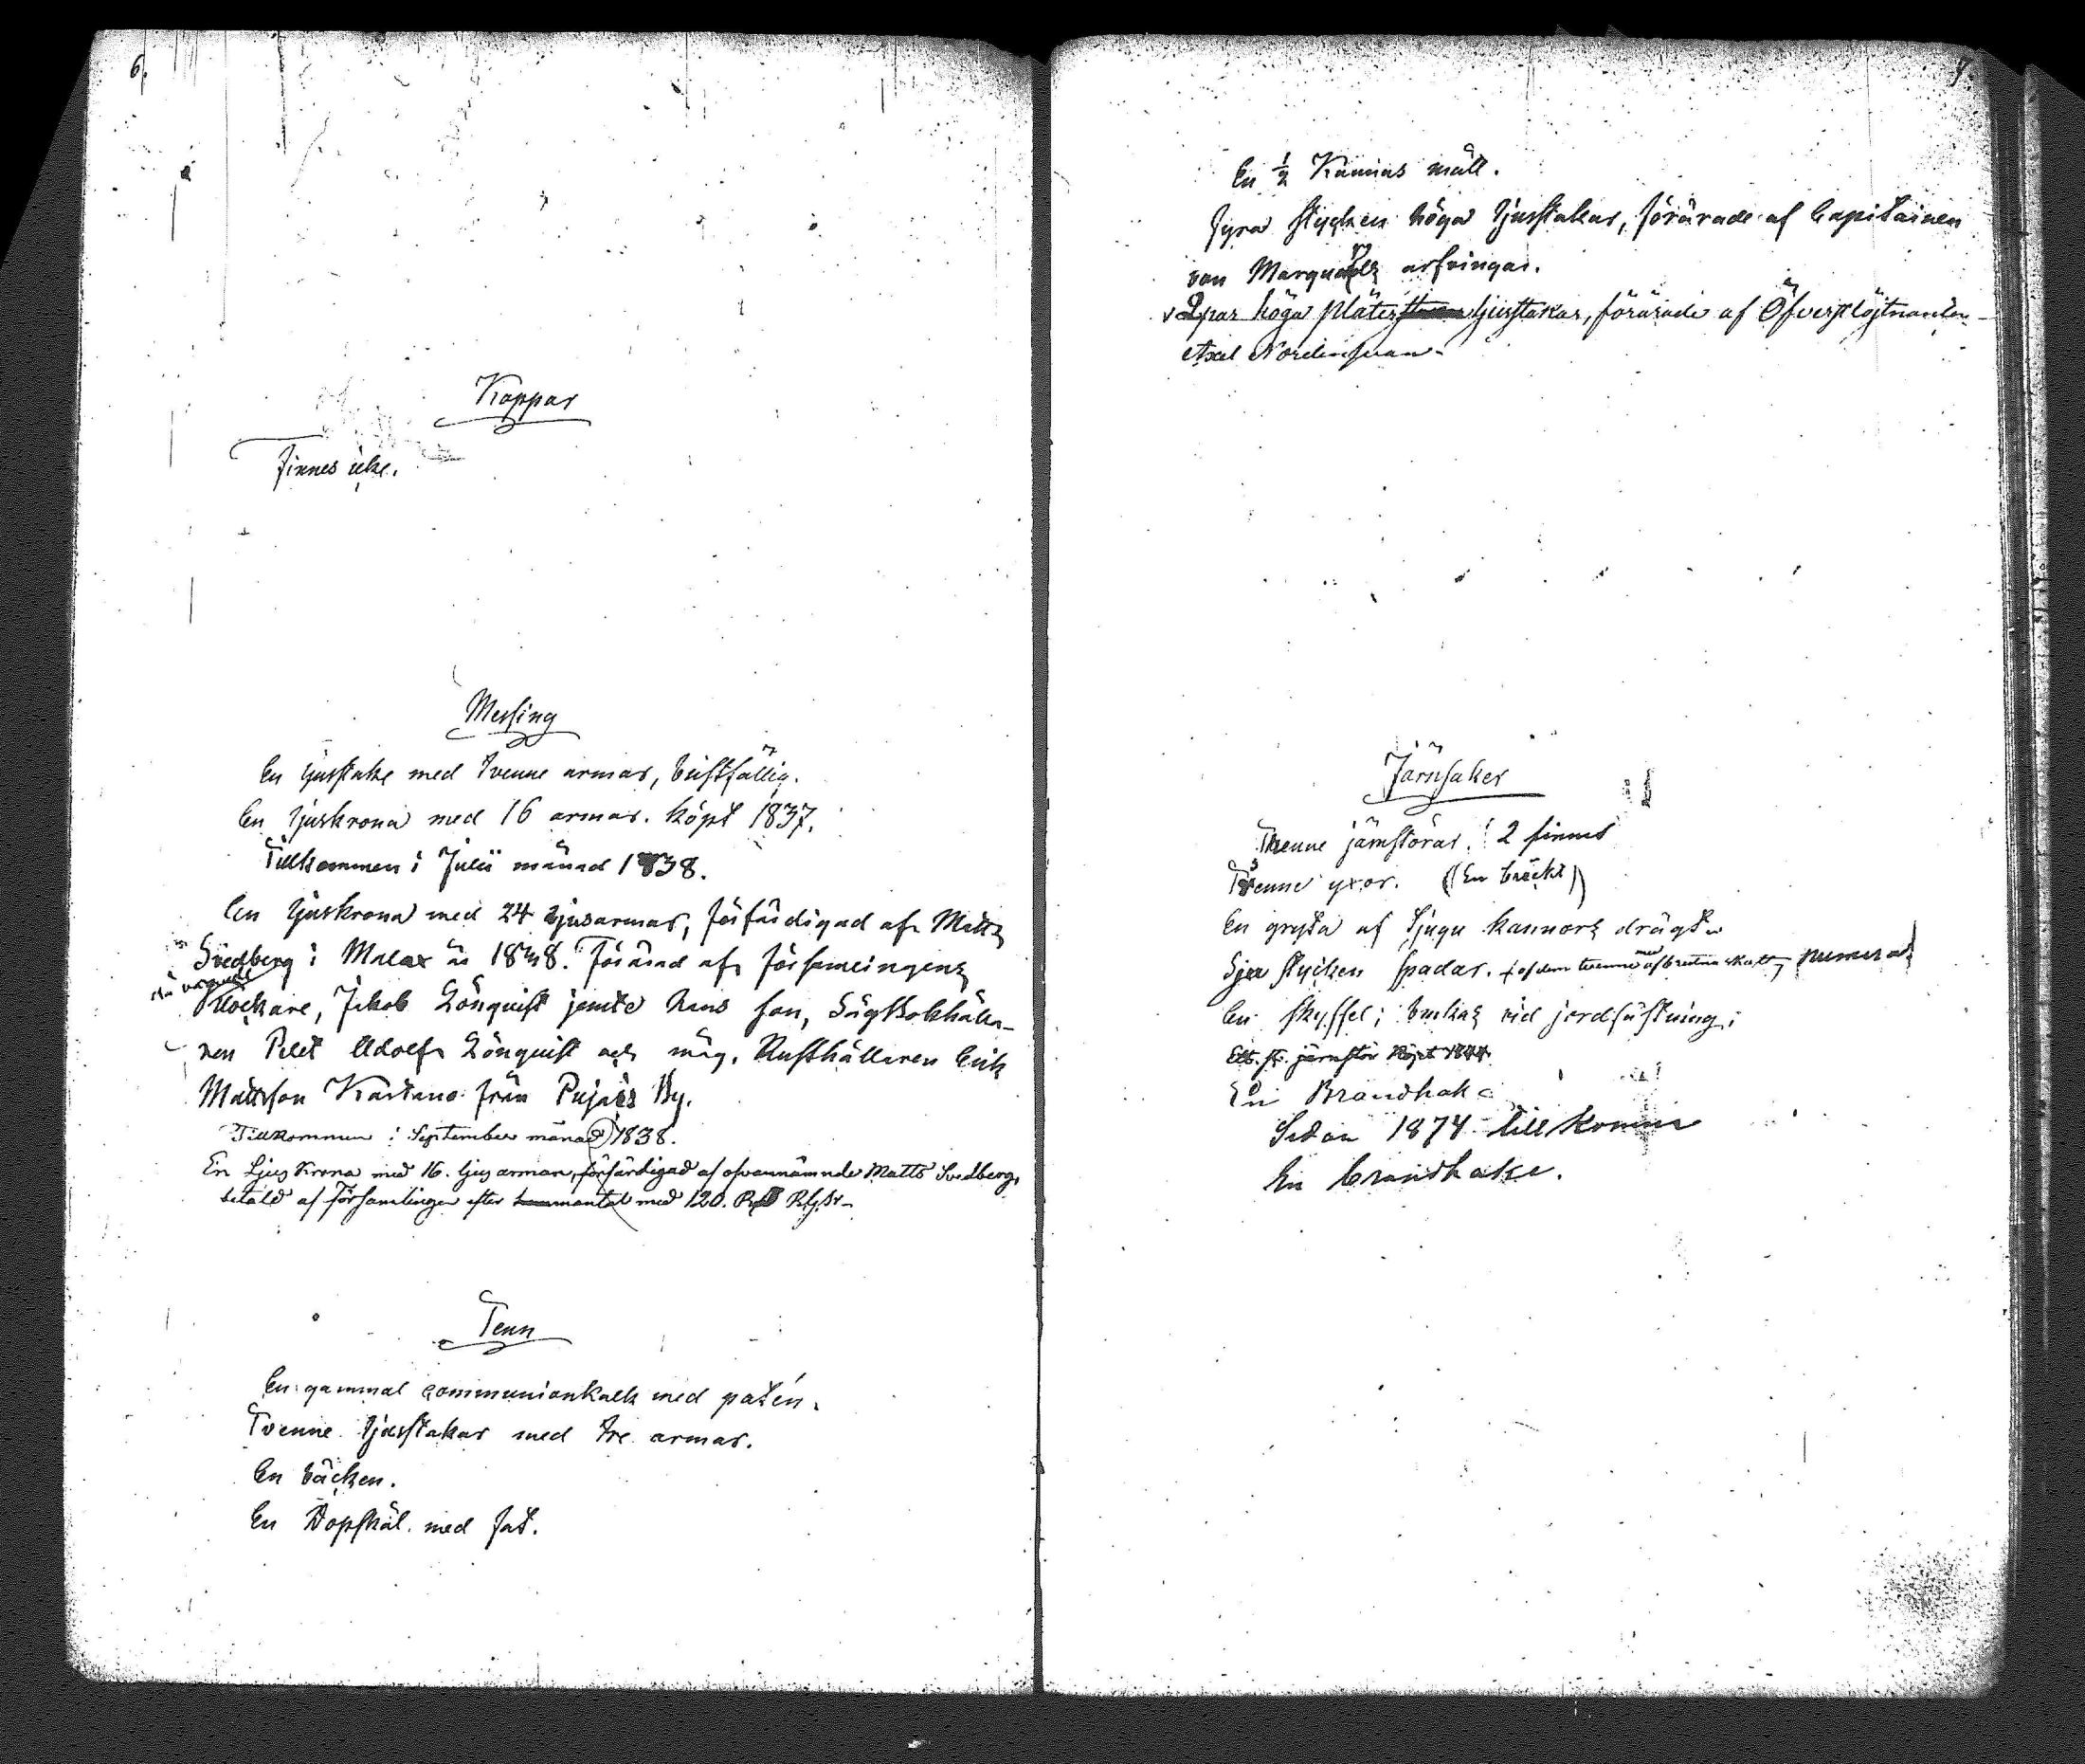 6.
Koppar
Finnes icke.
Messing
En ljusstake med tvenne armar, bristfällig.
En ljuskrona med 16 armar. köpt 1837.
Tillkommen i Julii månad 1838.
En ljuskrona med 24 ljusarmar, förfärdigad af Matts
Svedberg i Malax år 1838. Förärad af församlingens
Klockare, Jakob Lönquist jemte hans son,
ren Adolf Lönquist och måg, Rusthållaren Erik
Mattsson Kastano från By.
Tillkommen i September månad 1838.
En Ljus Krona med 16. ljus armar, förfärdigad af ofvannämnde Matts Svedberg,
betald af Församlingen efter mantal med 120. Rgs.
Tenn
En gammal communionkalk med patén.
Tvenne ljusstakar med tre armar.
En bäcken.
En Dopskål med fat.
7.
En ½ Kannas mått.
Fyra stycken höga ljusstakar, förärade af Capitainen
von arfvingar.
2 par höga pläter ljusstakar, förärade af Öfverstlöjtnanten
Axel Nordensvan
Järnsaker
Trenne järnstörar. 2 finnes
Trenne yxor. (En bräckt)
En gryta af tjugu kannors drägt
Sju stycken spadar. af dem tvenne med afbrutna skaft, numera
En skyffel; brukas vid jordfästning;
Ett st. järnstör Köpt 1844
En Brandhake
Sedan 1874 tillkommit
En brandhake.